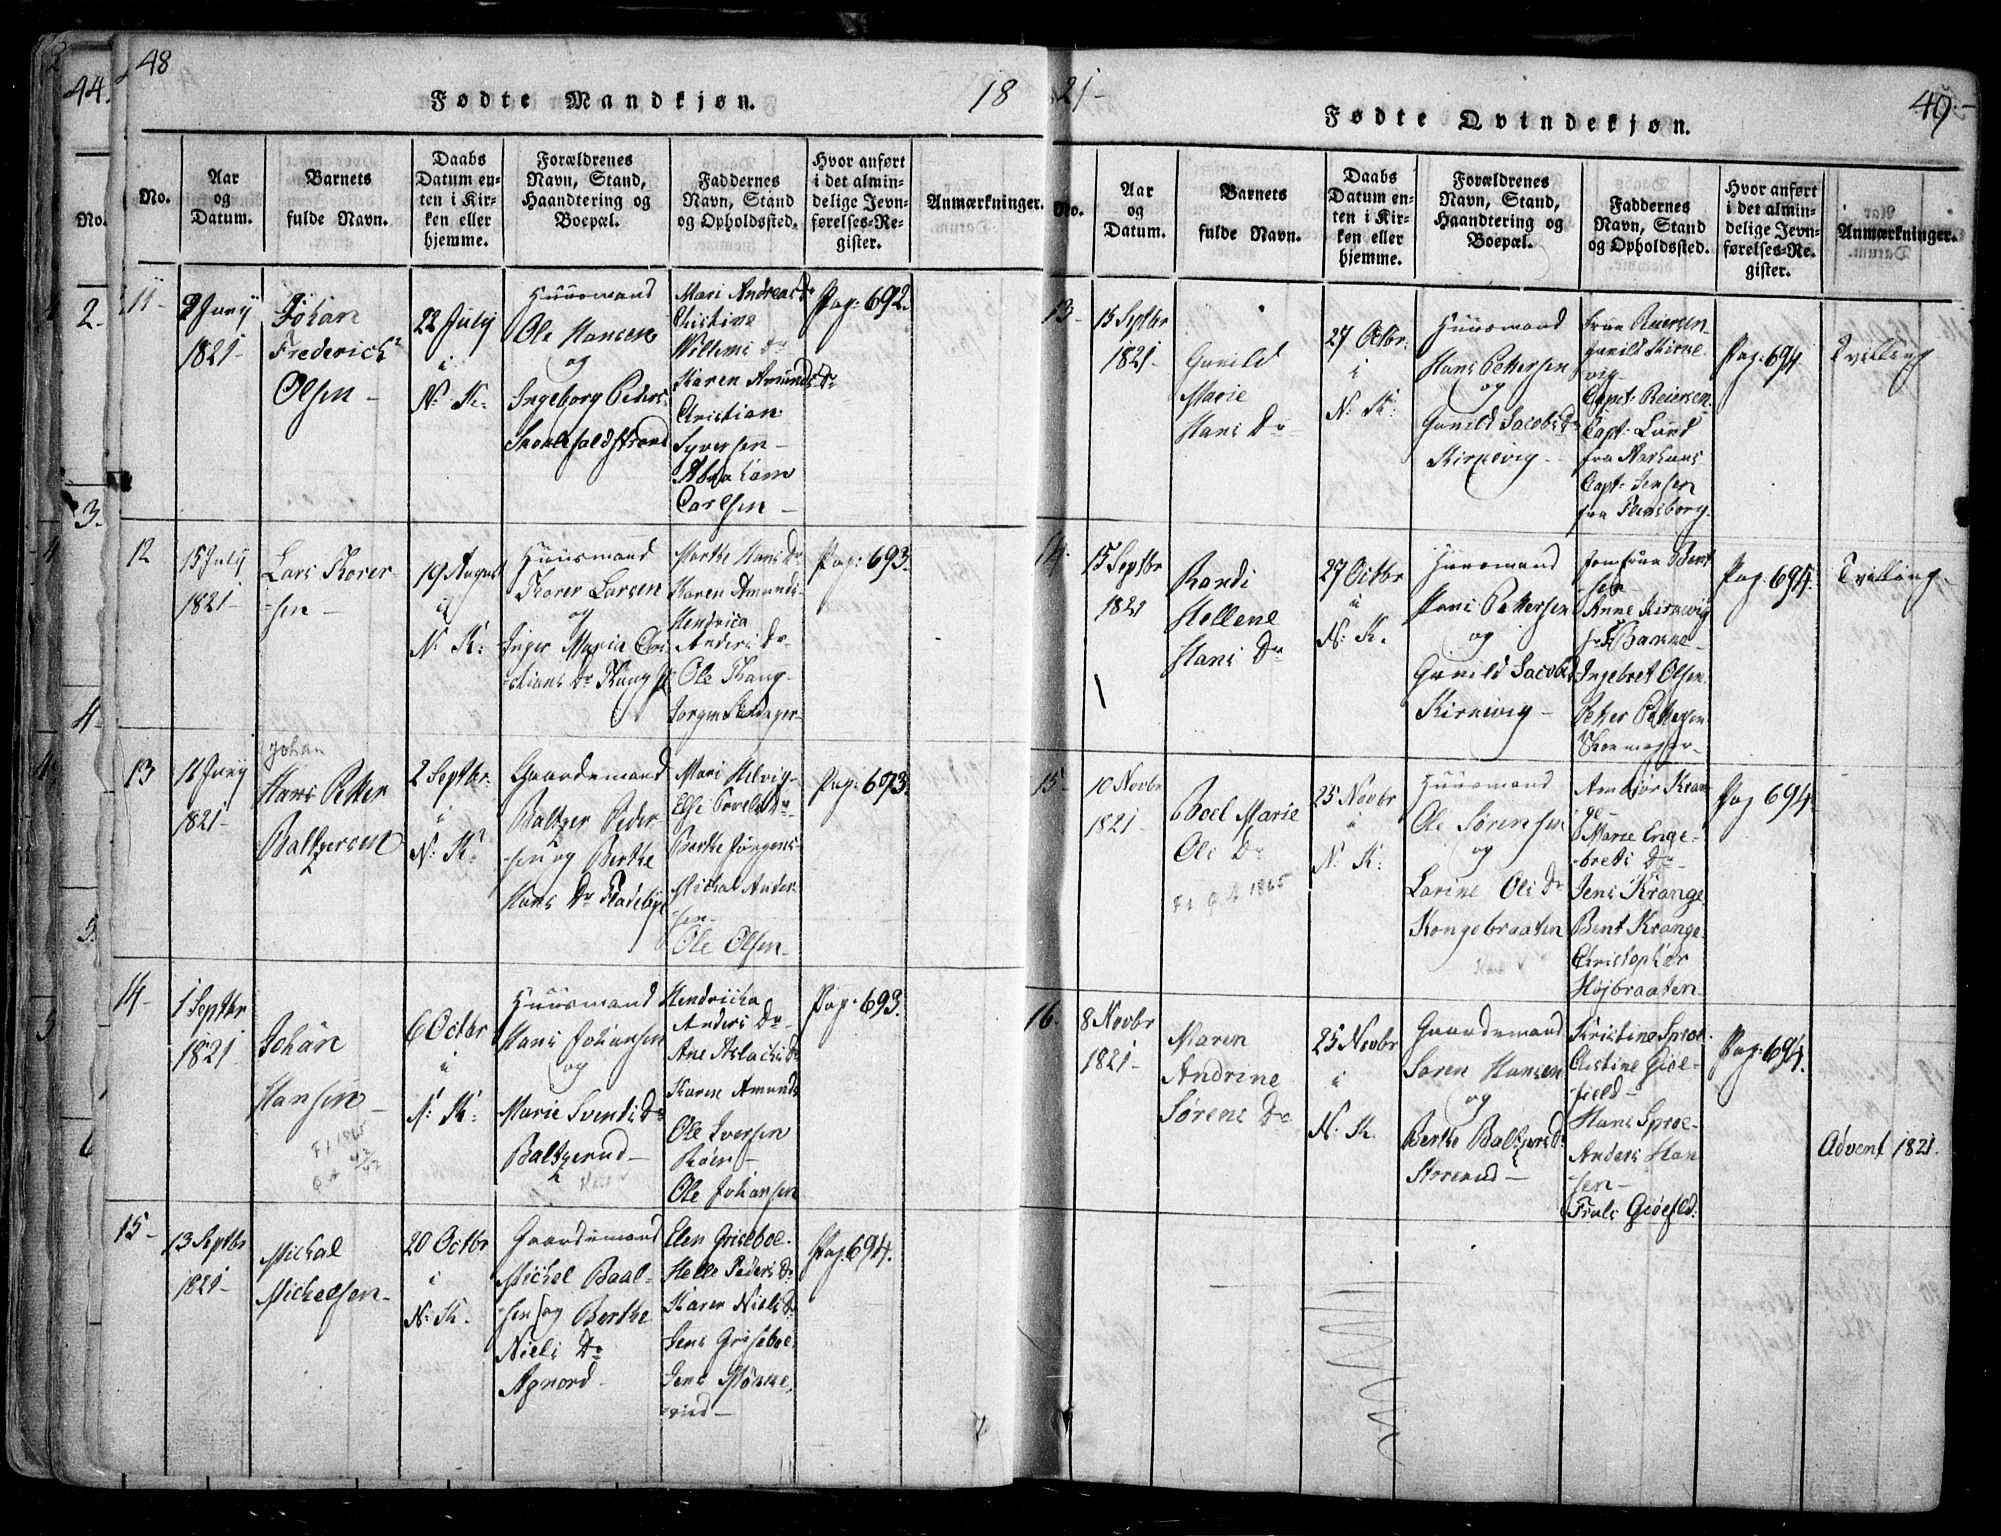 48
Fødte Mandkjøn.
18
No.
Aar
og
Datum.
Barnets
fulde Navn.
Daabs
Datum en-
ten i Kir-
ken eller
hjemme.
Forældrenes
Navn, Stand,
Haandtering og
Boepæl.
Faddernes
Navn, Stand
og Opholdssted.
Hvor anført
i det almin-
delige Jevn-
førelses-Re-
gister.
Anmærkninger.
11
1821
Johan
Frederich
Olsen
22 July
i
N: K:
Huusmand
Ole Hansen
og
Ingeborg Peders
Mari Andreas Dr
Christine
Willems Dr
Karen Amunds Dr
Christian
Syversen
Abraham
Carlsen
Pag: 692.
12
15 July
1821
Lars Thorer-
sen
19 August
i
N: K:
Huusmand
Thorer Larsen
og
Inger Maria Chri-
stians Dr
Marthe Hans Dr
Karen Amunds-
Hendrica
Anders Dr
Ole
Jørgen
Pag: 693.
13
1821
Johan
Hans Petter
Baltzersen
2 Septbr.
i
N: K:
Gaardemand
Baltzer Peder-
sen og Berthe
Hans Dr Fladebye
Mari Helvig
Else
Berthe Jørgens-
Michal Ander-
sen
Ole Olsen
Pag: 693.
14
1 Septbr
1821
Johan
Hansen
6 Octbr
i
N: K:
Huusmand
Hans Johansen
og
Marie Svends Dr
Baltzerud
Hendricka
Anders Dr
Ane Aslachs Dr
Karen Amunds
Ole Iversen
Røer
Ole Johansen
Pag: 693.
15
13 Septbr
1821
Michal
Michelsen
20 Octbr
i
N: K.
Gaardemand
Michel Paal-
sen og Berthe
Niels Dr
Agnord
Elen Griseboe
Helle Peders Dr
Karen Niels Dr
Jens Griseboe
Jens Mønne-
rud
Pag: 694.
21
49.
Fødte Qvindekjøn.
No.
Aar
og
Datum.
Barnets
fulde Navn.
Daabs
Datum en-
ten i Kir-
ken eller
hjemme.
Forældrenes
Navn, Stand,
Haandtering og
Boepæl.
Faddernes
Navn, Stand
og Opholdssted.
Hvor anført
i det almin-
delige Jevn-
førelses-Re-
gister.
Anmærkninger.
13
15 Septbr
1821
Gunild
Marie
Hans Dr
27 Octbr:
i
N: K:
Huusmand
Hans Pettersen
og
Gunild Jacobs Dr
Kirnevig
Frue Reiersen
Gunild Kirne-
vig
Capt: Reiersen
Capt: Lund
fra Aarhuus
Capt: Jensen
fra Flensborg.
Pag: 694.
Tvilling
14.
15 Septbr
1821
Randi
Hellene
Hans Dr
27 Octbr
i
N: K.
Huusmand
Hans Pettersen
og
Gunild Jacobs Dr
Kirnevig
Jomfrue Bent-
sen
Anne Kirnevig
Ingebret Olsen
Petter Pettersen
Skoemager
Pag: 694.
Tvilling
15
10 Novbr
1821
Boel Marie
Ols Dr
25 Novbr
i
N: K:
Huusmand
Ole Sørensen
og
Larine Ols Dr
Kongebraaten
Anebjør Kran-
ge
Marie Enge-
brets Dr
Jens Krange
Bent Krange
Christopher
Højbraaten
Pag 694.
16.
8 Novbr
1821
Maren
Andrine
Sørens Dr
25 Novbr
i
N: K.
Gaardemand
Søren Hansen
og
Berthe Baltzers Dr
Storerud
Kristine Sproe
Christine Giøe-
field
Hans Sproe
Anders Han-
sen
Frals Giøefld:
Pag: 694.
Advent 1821.